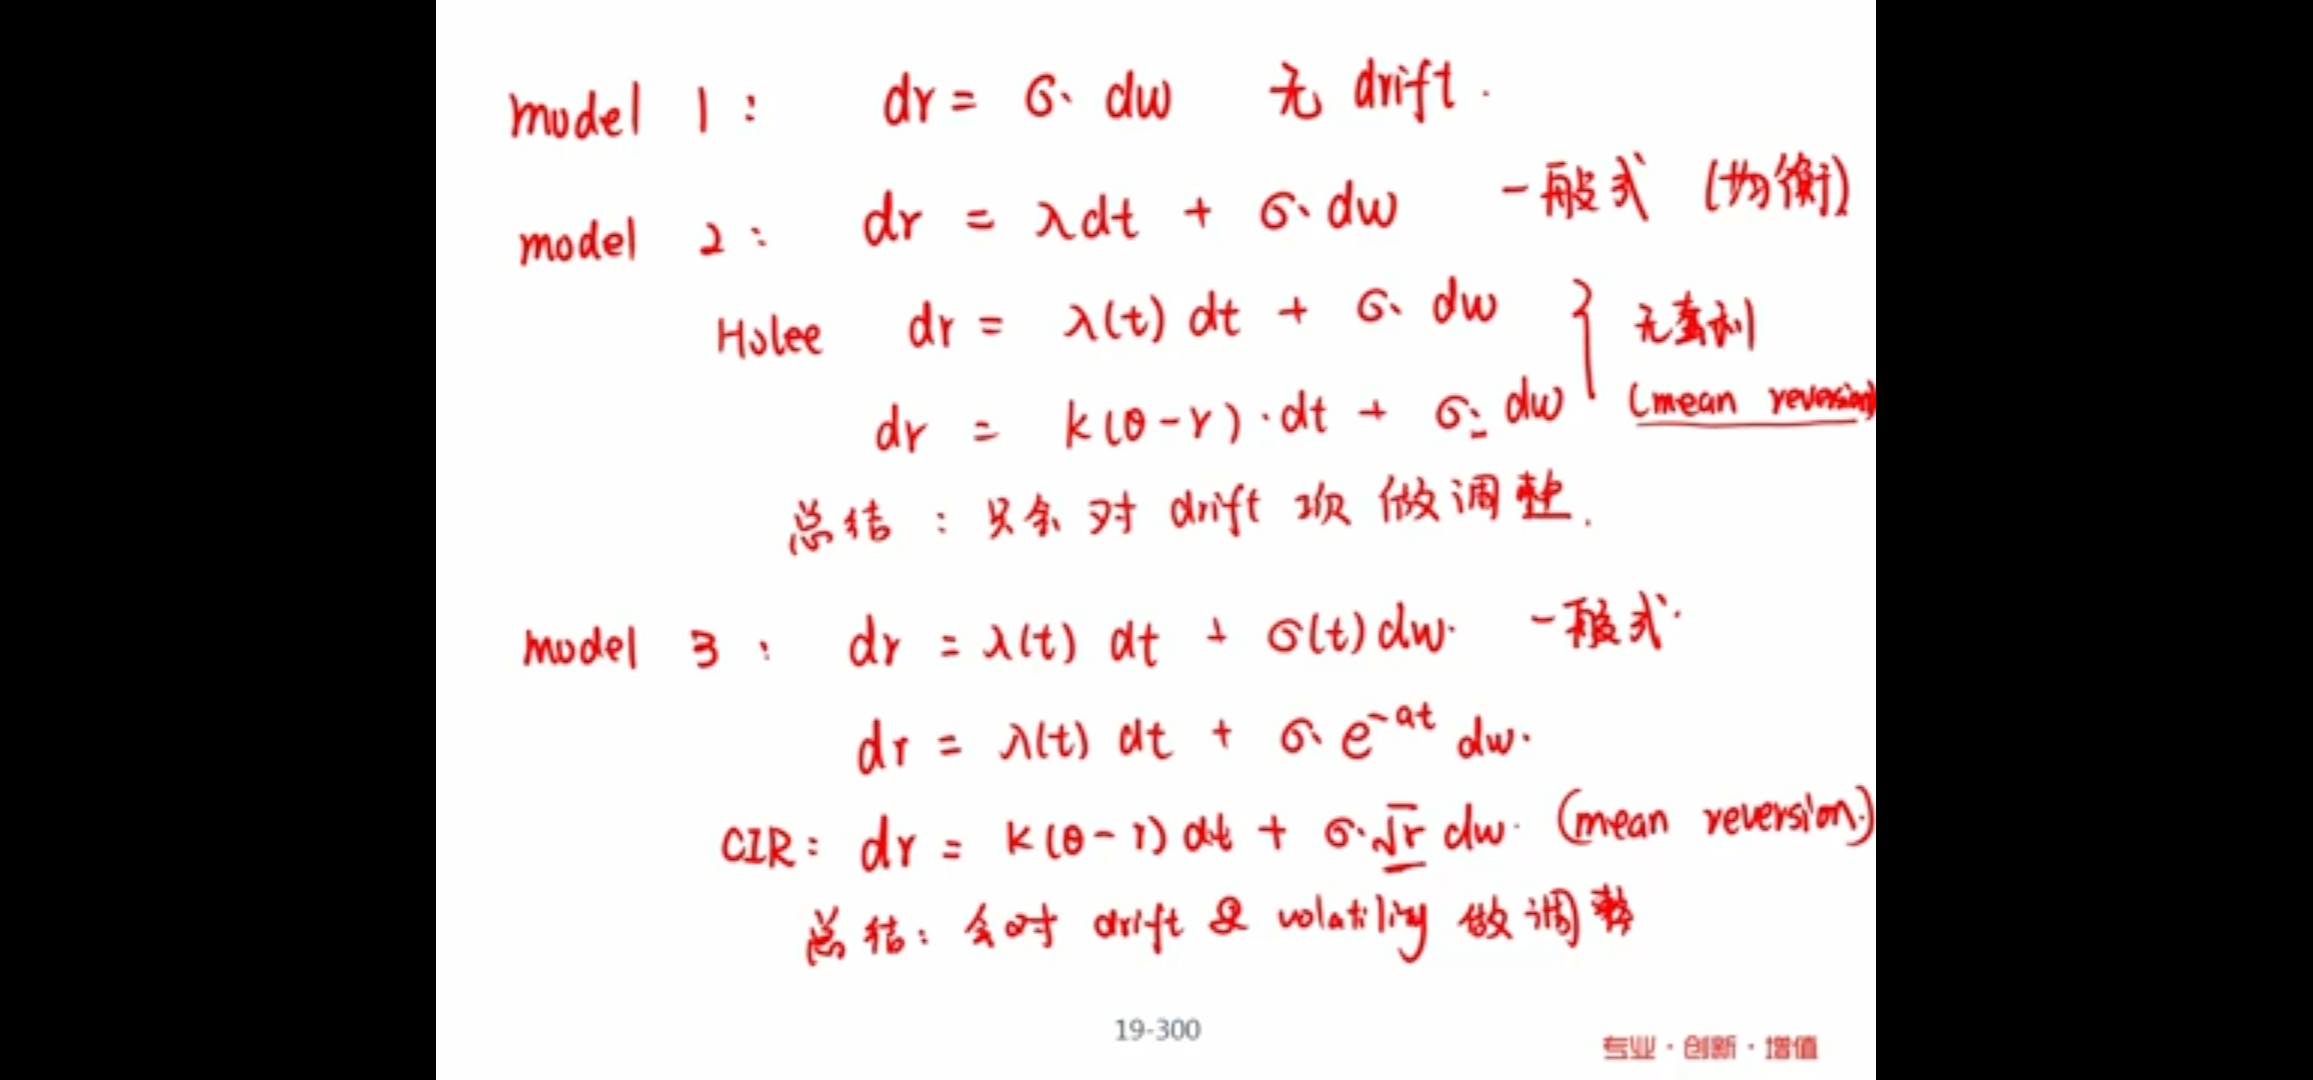 model 1: dr = σ· dw 无 drift.
model 2: dr = λdt + σ·dw 一般式 (均衡)
Holee dr = λ(t) dt + σ· dw } 无套利
dr = k(θ-r)·dt + σ· dw (mean reversion)
总结: 只会对 drift 项做调整.
model 3: dr = λ(t) dt + σ(t) dw. 一般式.
dr = λ(t) dt + σ·e^{-at} dw.
CIR: dr = k(θ-r) dt + σ·√r dw. (mean reversion.)
总结: 会对 drift & volatility 做调整
19-300
专业·创新·增值